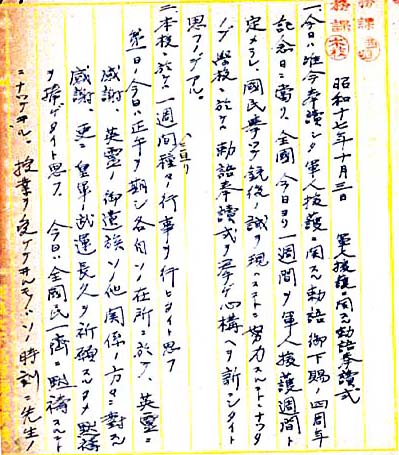 昭和十七年十月三日
軍人援護ニ関スル勅語奉読式
一、今日ハ唯今奉讀シタ軍人援護ニ関スル勅語御下賜ノ四周年
記念日ニ当リ、全國今日ヨリ一週間ヲ軍人援護週間ト
定メラレ、國民挙ッテ銃後ノ誠ヲ現ハスコトニ努力スルコトニナッタ
ノデ學校ニ於テハ勅語奉讀式ヲ挙ゲ心構ヘヲ新シタイト
思フノデアル。
二、本校ニ於テハ一週間ニ亘リ種々ノ行事ヲ行ヒタイト思フ
第一日ノ今日ハ正午ヲ期シ各自ノ在所ニ於テ、英霊ニ
感謝、英霊ノ御遺族ソノ他関係ノ方々ニ對スル
感謝、更ニ皇軍ノ武運長久ヲ祈願スルタメ黙祷
ヲ捧ゲタイト思フ。今日ハ全國民一齊ニ黙祷スルコト
ニナッテヰル。授業ヲ受ケテヰルモノハソノ時刻ニ先生ノ